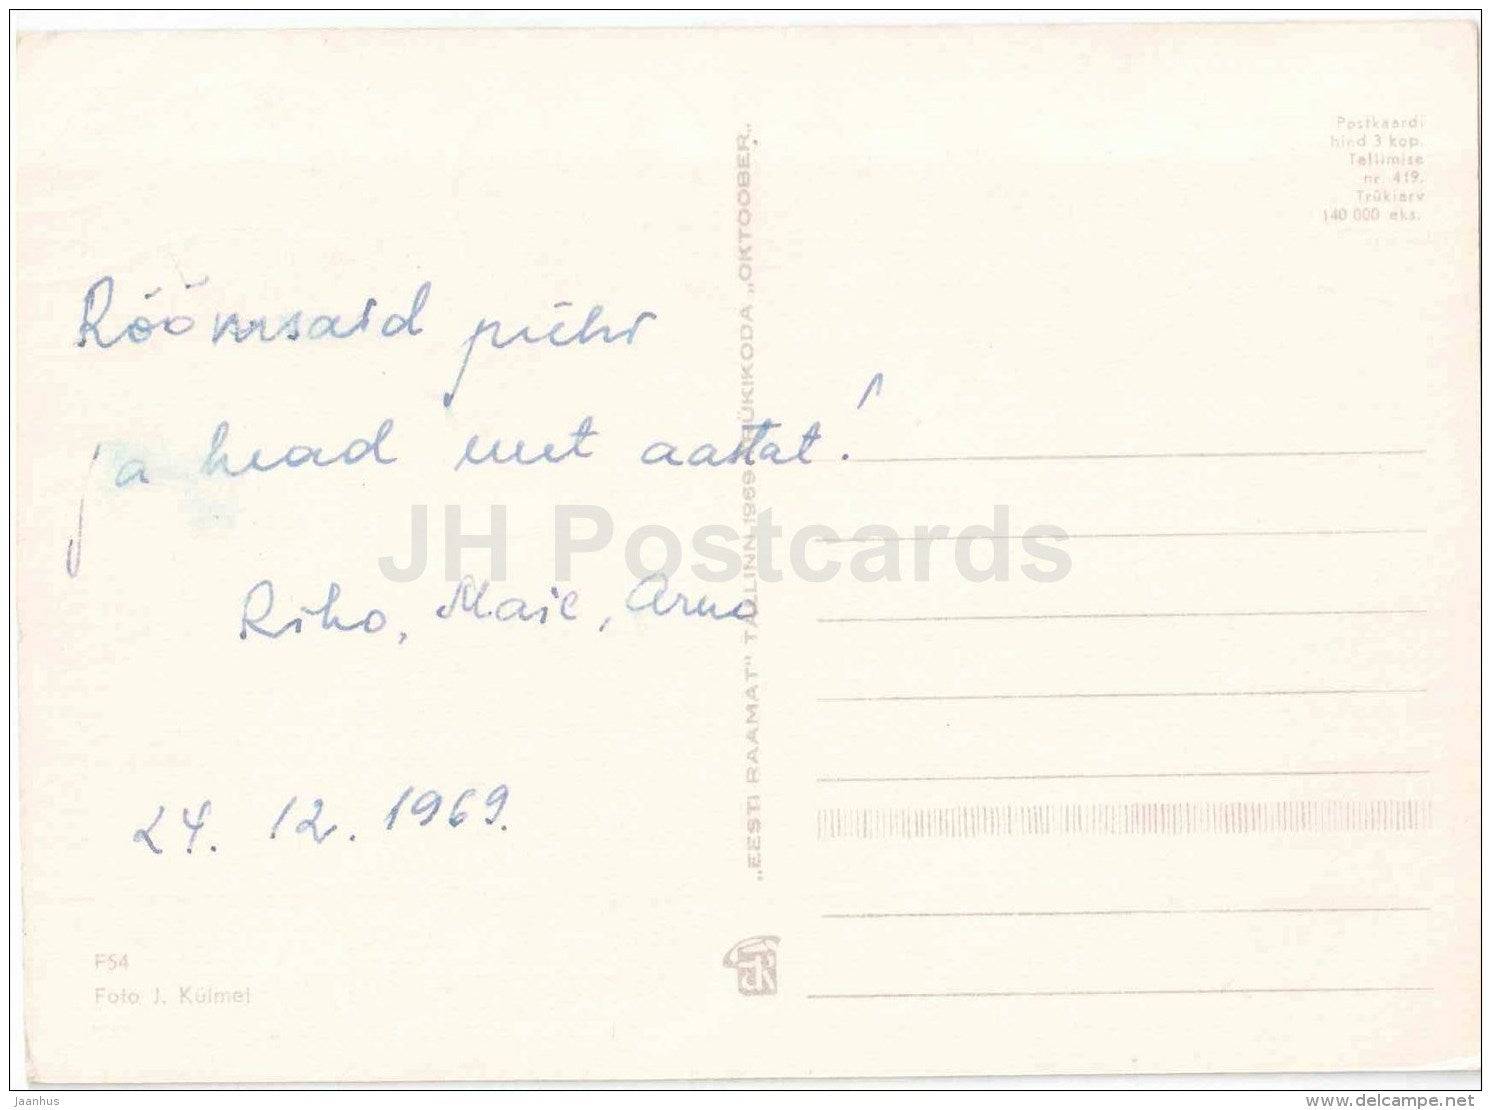 Rõõmsaid pühi
ja head uut aastat!
Riho, Maie, Arno
24. 12. 1969.
F54
Foto J. Külmet
„EESTI RAAMAT" TALLINN 1969 TRÜKIKODA „OKTOOBER„
Postkaardi
hind 3 kop.
Tellimise
nr. 419.
Trükiarv
140 000 eks.
JH Postcards
Jaanhus
www.delcampe.net